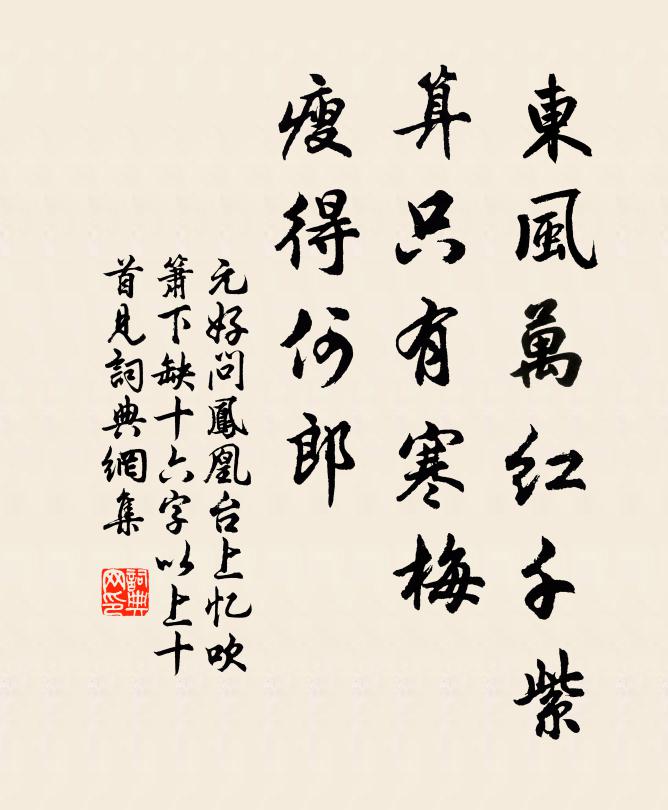 東風萬紅千紫
算只有寒梅
瘦得何郎
元好问鳳凰台上忆吹
簫下缺十六字以上十
首見詞典網集
詞典
网印